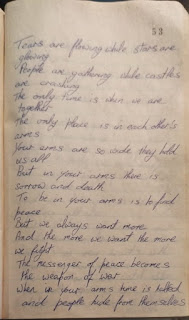 53
Tears are flowing while stars are
glowing
People are gathering while castles
are crashing
The only time is when we are
together
The only place is in each other's
arms
Your arms are so wide they hold
us all
But in your arms there is
sorrow and death
To be in your arms is to find
peace
But we always want more
And the more we want the more
we fight
The messenger of peace becomes
the weapon of war
When in your arms time is killed
and people hide from themselves